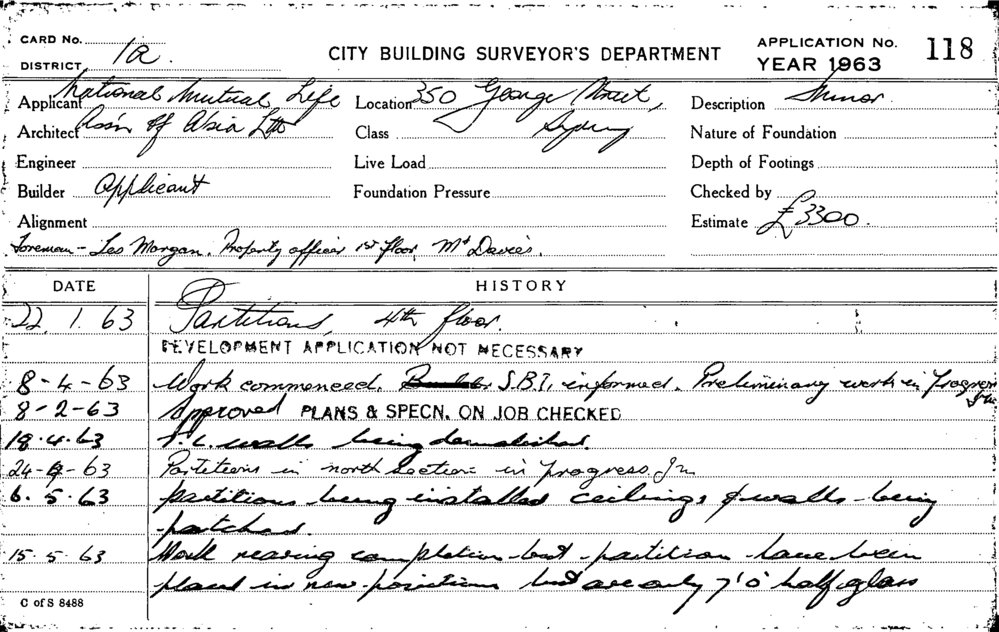 CARD No.
DISTRICT 1a.
CITY BUILDING SURVEYOR'S DEPARTMENT
APPLICATION No. 118
YEAR 1963
Applicant National Mutual Life
Location 350 George Street,
Description Minor
Architect Ass'n of Asia Ltd
Class Sydney
Nature of Foundation
Engineer
Live Load
Depth of Footings
Builder Applicant
Foundation Pressure
Checked by
Alignment
Estimate £3300.
Foreman - Les Morgan. Property officer 1st floor, Mr Davies.
DATE HISTORY
22. 1. 63 Partitions, 4th floor.
DEVELOPMENT APPLICATION NOT NECESSARY
8-4-63 Work commenced. S.B.I. informed. Preliminary work in progress
8-2-63 Approved PLANS & SPECN. ON JOB CHECKED
18.4.63 walls being demolished.
24-4-63 Partitions in north section in progress. Jm
6.5.63 partitions being installed ceilings & walls being
patched.
15.5.63 Work nearing completion but partition have been
placed in new positions but are only 7'0" half glass
C of S 8488